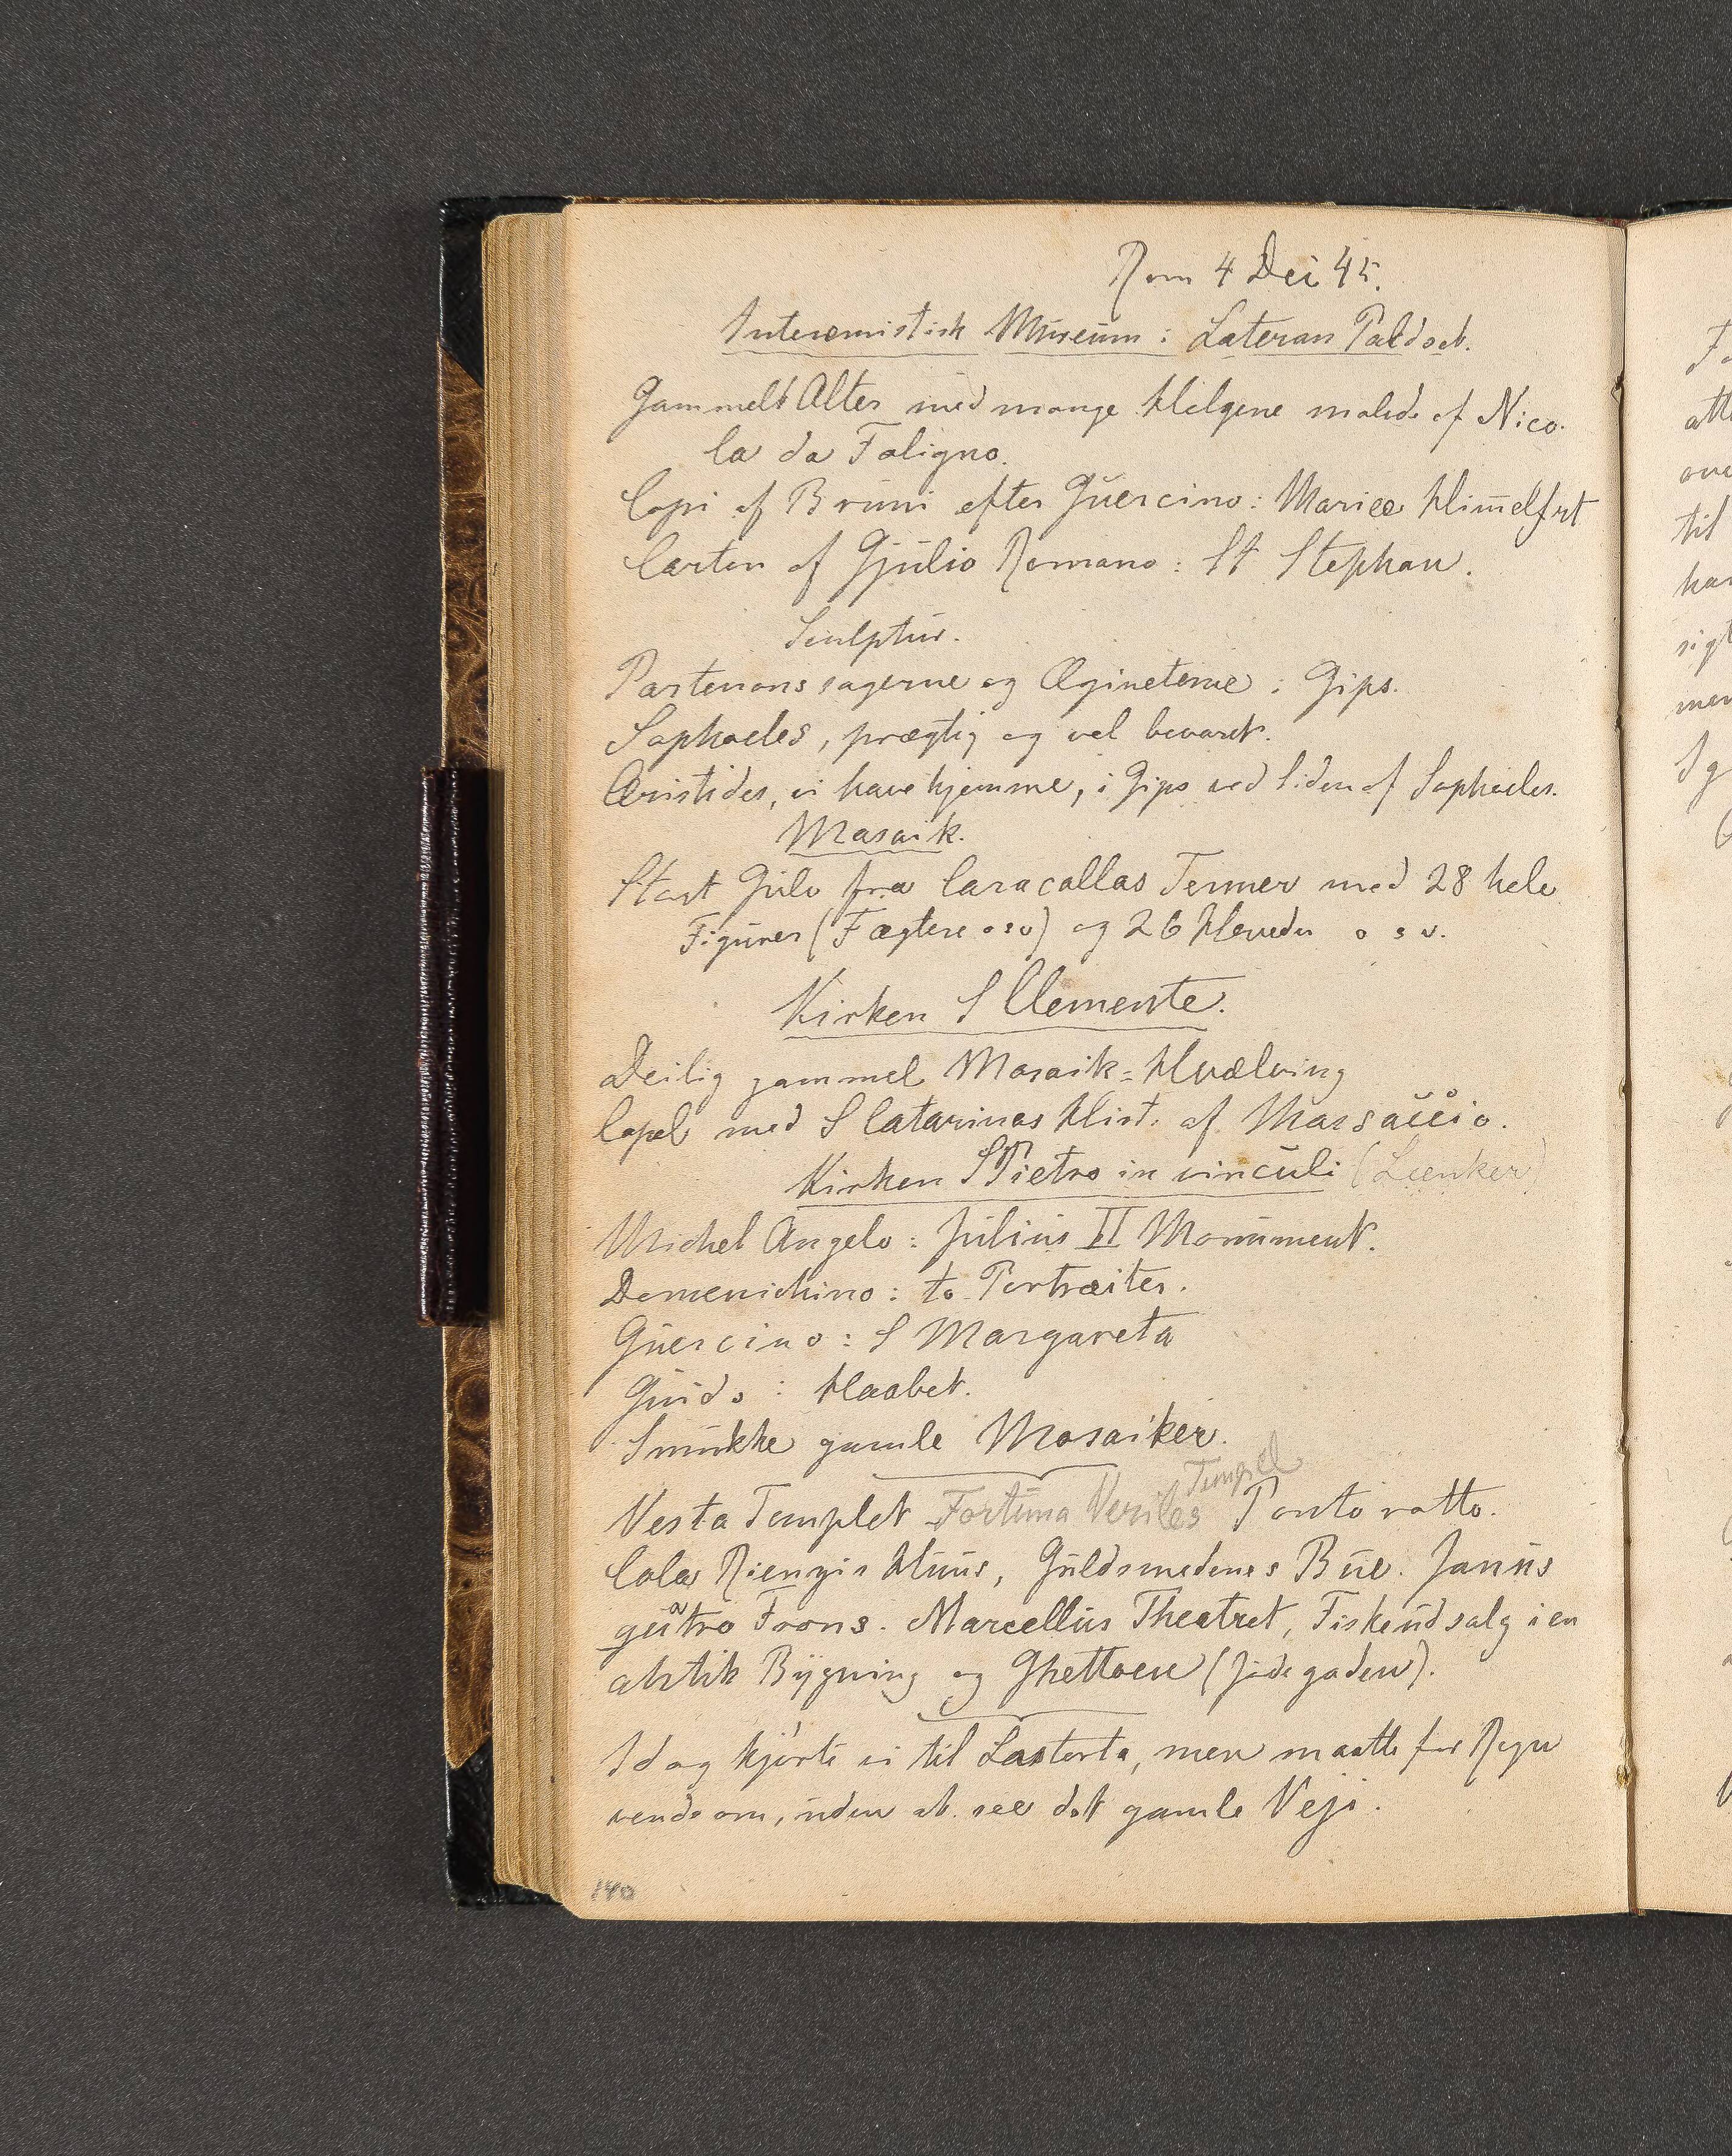 Rom 4 Dec 45.
Interemistisk Museum: Lateran Paladset.
Gammelt Alter med mange Helgene malede af Nico-
la da Foligno.
Copi af Bruni efter Guercino: Mariæ Him̅elfrt
Carton af Gjulio Romano: St Stephan.
Sculptur.
Partenons sagerne og Ægineterne i Gips.
Sophocles, prægtig og vel bevaret.
Aristides, vi have hjemme, i Gips ved Siden af Sophocles.
Mosaik.
Stort Gulv fra Caracallas Termer med 28 hele
Figurer (Fægtere osv) og 26 Hoveder o s v.
Kirken S Clemente.
Deilig gammel Mosaik=Hvælving
Capel med S Catarinas Hist. af Massaccio.
Kirken S Pietro in vinculi (Lænker)
Michel Angelo: Julius II Monument.
Domenichino: to Portraiter.
Guercino: S Margareta
Guido: Haabet.
Smukke gamle Mosaiker.
Tempel
Vesta Templet Fortuna Veriles Ponto rotto.
Colas Rienzis Huus, Guldsmedenes Bue. Janus
quatro Frons. Marcellus Theatret, Fiskeudsalg i en
antik Bygning og Ghettoen (Jødegaden).
Idag kjørte vi til Lastorta, men maatte for Regn
vende om, uden at see det gamle Veji.
140